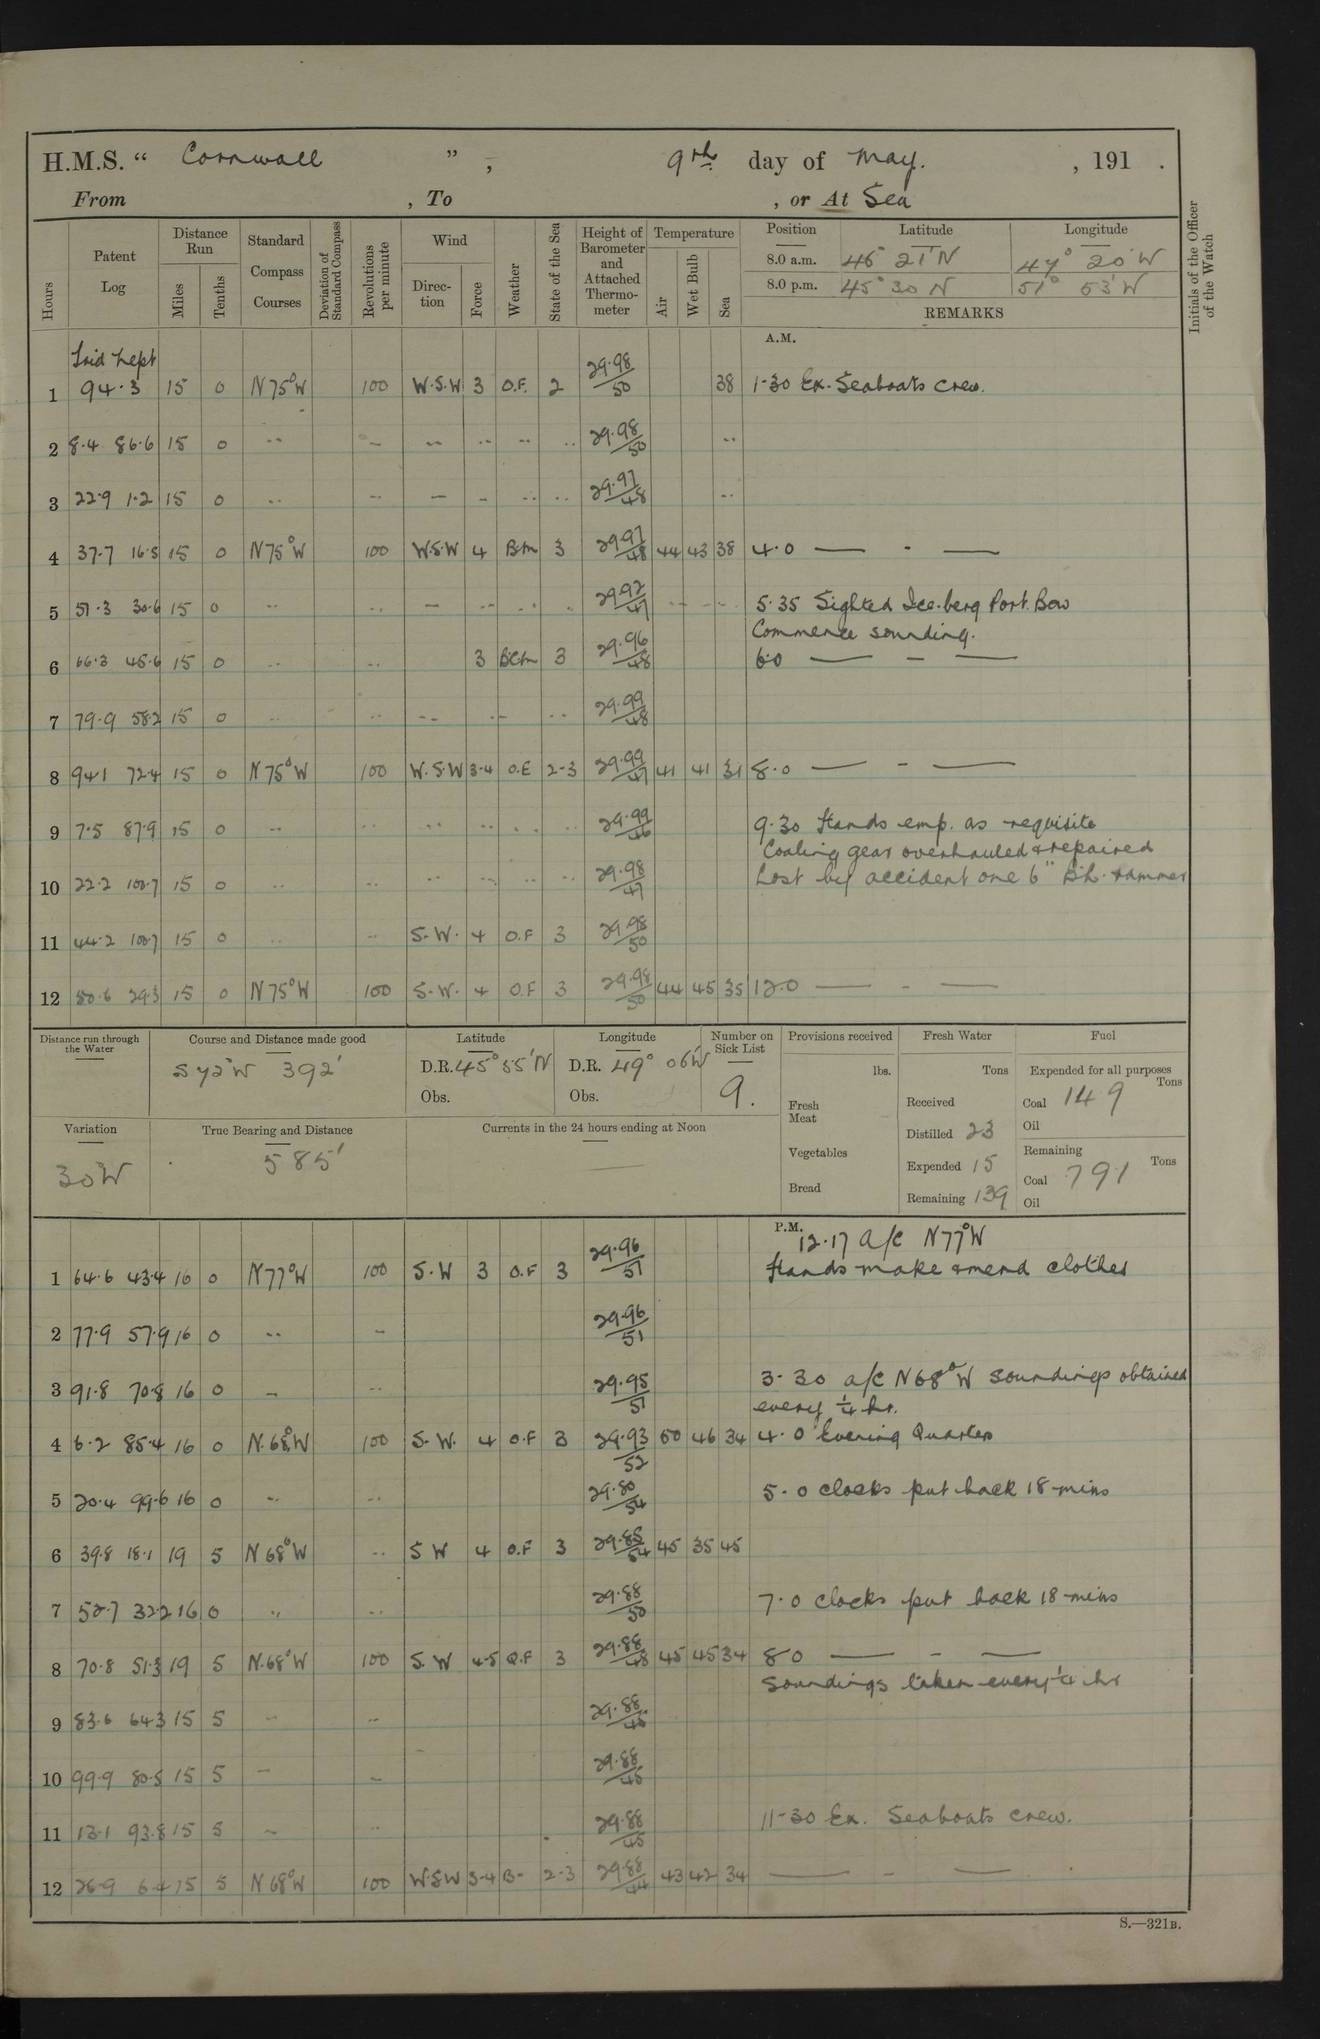 H.M.S. “ Cornwall ” , 9th day of May. , 191 .
From , To , or At Sea
Hours Patent Log Distance Run Miles Tenths Standard Compass Courses Deviation of Standard Compass Revolutions per minute Wind Direction Force Weather State of the Sea Height of Barometer and Attached Thermometer Temperature Air Wet Bulb Sea Position Latitude Longitude Initials of the Officer of the Watch
8.0 a.m. 46° 21' N 47° 20' W
8.0 p.m. 45° 30 N 51° 53' W
REMARKS
A.M.
1 94.3 15 0 N75°W 100 W.S.W 3 O.F. 2 29.98/50 38 1-30 Ex. Seaboats crew.
2 8.4 86.6 15 0 .. .. .. .. .. .. 29.98/50 ..
3 22.9 1.2 15 0 .. .. .. .. .. .. 29.97/48 ..
4 37.7 16.5 15 0 N75°W 100 W.S.W 4 B.m 3 29.97/48 44 43 38 4.0 — - —
5 51.3 30.6 15 0 .. .. .. .. .. .. 29.92/47 .. .. .. 5.35 Sighted Ice-berg Port Bow
Commence sounding.
6 66.3 45.6 15 0 .. .. 3 B.C.m 3 29.96/48 6.0 — - —
7 79.9 58.2 15 0 .. .. .. .. .. 29.99/48
8 94.1 72.4 15 0 N75°W 100 W.S.W 3-4 O.F 2-3 29.99/47 41 41 31 8.0 — - —
9 7.5 87.9 15 0 .. .. .. .. .. .. 29.99/46 9.30 Hands emp. as requisite
Coaling gear overhauled & repaired
10 22.2 100.7 15 0 .. .. .. .. .. .. 29.98/47 Lost by accident one 6" B.L. rammer
11 44.2 100.7 15 0 .. .. S.W. 4 O.F 3 29.98/50
12 29.3 15 0 N75°W 100 S.W. 4 O.F 3 29.98/50 44 45 35 12.0 — - —
Distance run through the Water Course and Distance made good Latitude Longitude Number on Sick List Provisions received Fresh Water Fuel
S 72° W 392' D.R. 45° 55' N D.R. 49° 06' W 9. lbs. Tons Expended for all purposes Tons
Obs. Obs. Fresh Meat Received Coal 149
Oil
Variation True Bearing and Distance Currents in the 24 hours ending at Noon Distilled 23 Remaining
30W 585' Vegetables Expended 15 Coal 791 Tons
Bread Remaining 139 Oil
P.M.
12.17 a/c N77°W
1 64.6 43.4 16 0 N77°W 100 S.W 3 O.F 3 29.96/51 Hands make & mend clothes
2 77.9 57.9 16 0 .. .. 29.96/51
3 91.8 70.8 16 0 .. .. 29.95/51 3.30 a/c N68°W soundings obtained
every ¼ hr.
4 6.2 85.4 16 0 N.68°W 100 S.W. 4 O.F 3 29.93/52 50 46 34 4.0 Evening Quarters
5 20.4 99.6 16 0 .. .. 29.80/54 5.0 clocks put back 18 mins
6 39.8 18.1 19 5 N68°W .. S W 4 O.F 3 29.85/54 45 35 45
7 52.7 32.2 16 0 .. .. 29.88/50 7.0 clocks put back 18 mins
8 70.8 51.3 19 5 N.68°W 100 S.W 4-5 O.F 3 29.88/48 45 45 34 8.0 — - —
Soundings taken every ¼ hr
9 83.6 64.3 15 5 .. .. 29.88/45
10 99.9 80.5 15 5 .. .. 29.88/45
11 13.1 93.8 15 5 .. .. 29.88/45 11-30 Ex. Seaboats crew.
12 26.9 6.4 15 5 N68°W 100 W.S.W 3-4 B- 2-3 29.88/44 43 42 34 — - —
S.—321B.